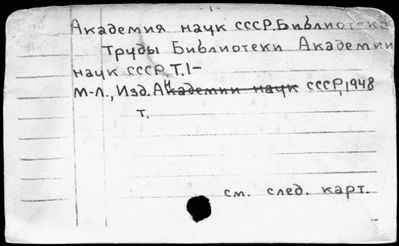 Академия наук СССР. Библиотека
Труды Библиотеки Академии
наук СССР, Т.1-
М-Л., Изд. Академии наук СССР, 1948
т.
см. след. карт.